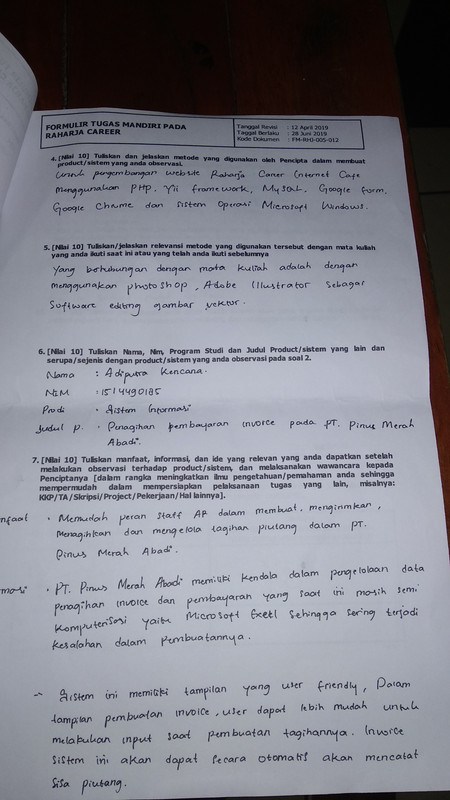 FORMULIR TUGAS MANDIRI PADA
RAHARJA CAREER
Tanggal Revisi : 12 April 2019
Taggal Berlaku : 28 Juni 2019
Kode Dokumen : FM-RHJ-005-012
4. [Nilai 10] Tuliskan dan jelaskan metode yang digunakan oleh Pencipta dalam membuat
product/sistem yang anda observasi.
Untuk pengembangan website Raharja Career Internet Cafe
menggunakan PHP. Yii framework, MySQL, Google form,
Google Chrome dan Sistem Operasi Microsoft Windows.
5. [Nilai 10] Tuliskan/jelaskan relevansi metode yang digunakan tersebut dengan mata kuliah
yang anda ikuti saat ini atau yang telah anda ikuti sebelumnya
Yang berhubungan dengan mata kuliah adalah dengan
menggunakan photoshop, Adobe Illustrator sebagai
Software editing gambar vektor.
6. [Nilai 10] Tuliskan Nama, Nim, Program Studi dan Judul Product/sistem yang lain dan
serupa/sejenis dengan product/sistem yang anda observasi pada soal 2.
Nama : Adiputra Kencana.
NIM : 1514490185
Prodi : Sistem Informasi
Judul p. : Penagihan pembayaran invoice pada PT. Pinus Merah
Abadi.
7. [Nilai 10] Tuliskan manfaat, informasi, dan ide yang relevan yang anda dapatkan setelah
melakukan observasi terhadap product/sistem, dan melaksanakan wawancara kepada
Penciptanya [dalam rangka meningkatkan ilmu pengetahuan/pemahaman anda sehingga
mempermudah dalam mempersiapkan pelaksanaan tugas yang lain, misalnya:
KKP/TA/Skripsi/Project/Pekerjaan/Hal lainnya].
nfaat : Memudah peran Staff AR dalam membuat, mengirimkan,
menagihkan dan mengelola tagihan piutang dalam PT.
Pinus Merah Abadi.
masi : PT. Pinus Merah Abadi memiliki kendala dalam pengelolaan data
penagihan invoice dan pembayaran yang saat ini masih semi
komputerisasi yaitu Microsoft Excel sehingga sering terjadi
kesalahan dalam pembuatannya.
- Sistem ini memiliki tampilan yang user friendly, Dalam
tampilan pembuatan invoice, user dapat lebih mudah untuk
melakukan input saat pembuatan tagihannya. Invoice
sistem ini akan dapat secara otomatis akan mencatat
sisa piutang.